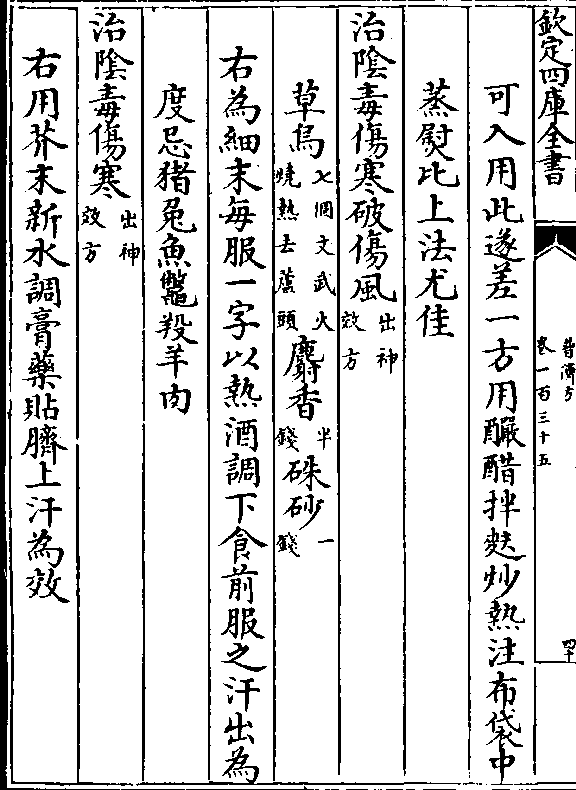 欽定四庫全書
普濟方
卷一百三十五
四十
可入用此遂差一方用釅醋拌麩炒熱注布袋中
蒸熨比上法尤佳
治陰毒傷寒破傷風出神效方
草烏七個文武火燒熱去蘆頭麝香半錢硃砂一錢
右為細末每服一字以熱酒調下食前服之汗出為
度忌猪兔魚鼈羖羊肉
治陰毒傷寒出神效方
右用芥末新水調膏藥貼臍上汗為效